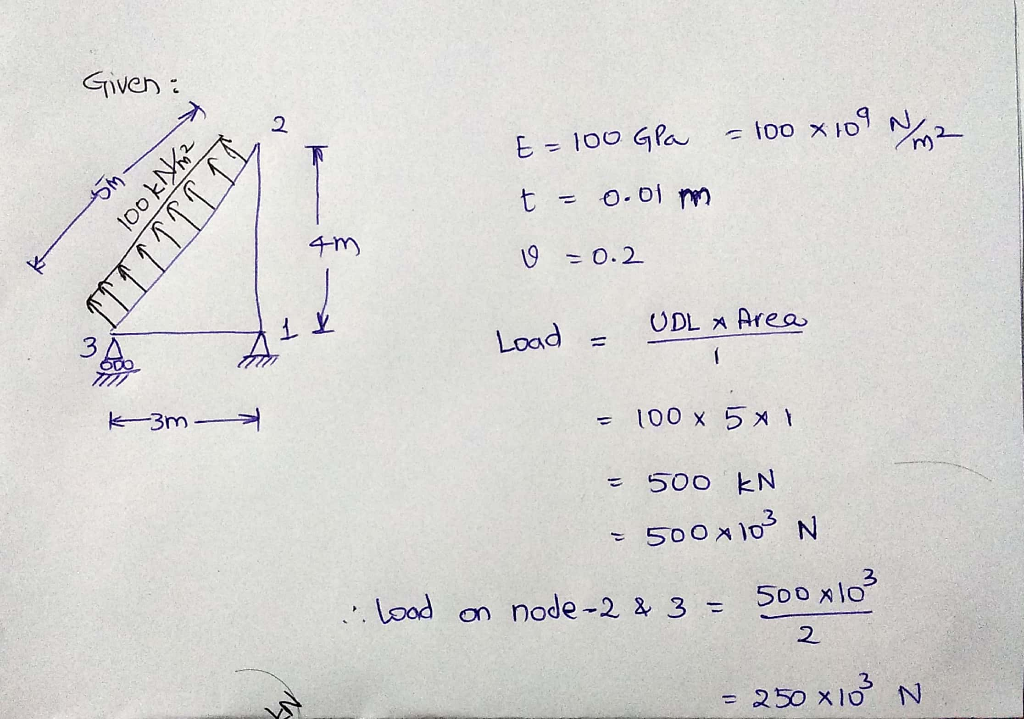 Given :
2
5m
100 kN/m²
4m
3
1
3m
E = 100 GPa = 100 x 10⁹ N/m²
t = 0.01 m
ϑ = 0.2
Load = UDL x Area / 1
= 100 x 5 x 1
= 500 kN
= 500 x 10³ N
∴ load on node-2 & 3 = 500 x 10³ / 2
= 250 x 10³ N